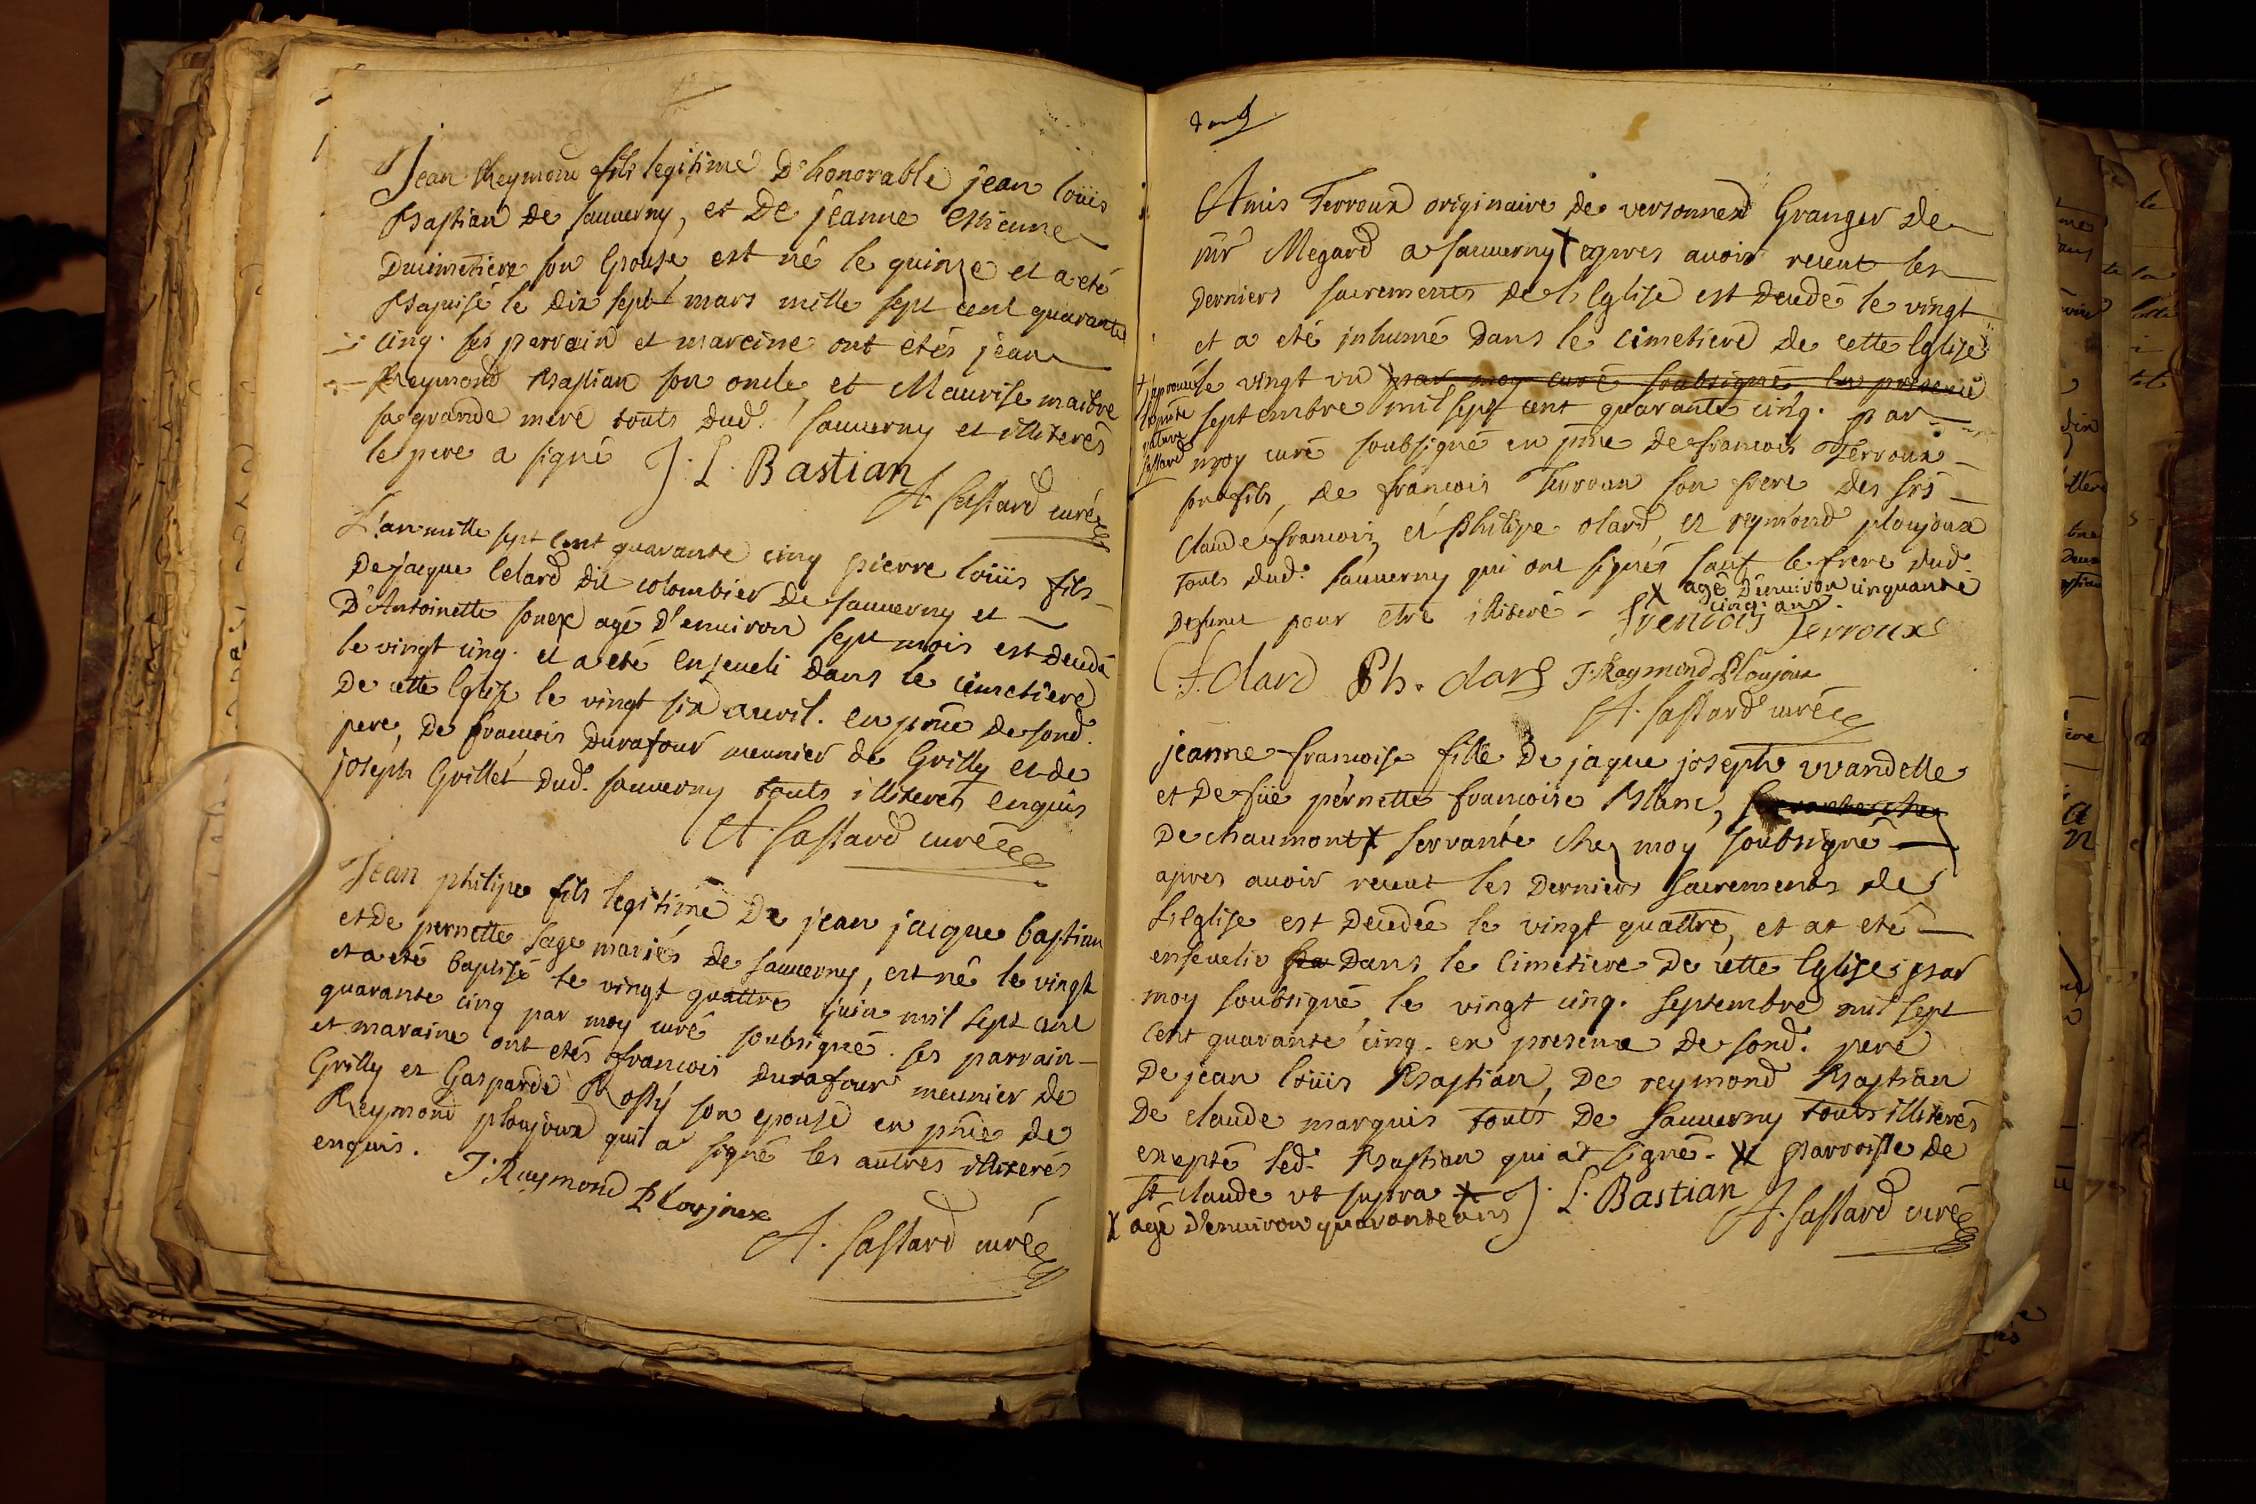 Jean Reymond fils legitime D'honorable jean loüis
Bastian de sauuerny, et De jeanne Estienne
Ducimetiere son Epouse est né le quinze et a eté
Baptisé le dix sept mars mille sept cent quarante
cinq. ses parrain et mareine ont etés jean
Reymond Bastian son oncle, et Maurise maitre
sa grande mere touts dud. sauuerny et illiterés
le pere a signé J. L. Bastian
A. Castard curé
L'an mille sept cent quarante cinq pierre loüis fils
De jacque lelard dit colombier de sauuerny et
D'Antoinette sonex agé d'enuiron sept mois est decedé
le vingt cinq. et a eté enseueli dans le cimetiere
De cette Eglise le vingt six auril. en pnce de sond.
pere, De francois Durafour meunier de Grilly et de
joseph Grillet dud. sauuerny touts illiterés enquis
A. Castard curé
Jean philipe fils legitime De jean jacque bastian
et de pernette sage mariés de sauuerny, est né le vingt
et a eté baptisé le vingt quattre juin mil sept cent
quarante cinq par moy curé soubsigné. ses parrain
et maraine ont etés francois durafour meunier de
Grilly et Gasparde Rossy son epouse en pnce de
Reymond ploujoux qui a signé les autres illiterés
enquis. J. Raymond Ploujoux
A. Castard curé
Amis Terroux originaire de versonnex Granger de
mr Megard a sauuerny X apres auoir receut les
Derniers sacrements de l'Eglise est decedé le vingt
et a eté inhumé dans le cimetiere de cette Eglise
le vingt un par moy curé soubsigné en presence
septembre mil sept cent quarante cinq. par
moy curé soubsigné en pnce de francois Terroux
son fils, de francois Terroux son frere des srs
Claude francois et philipe olard, et reymond ploujoux
touts dud. sauuerny qui ont signés sauf le frere dud.
X agé d'enuiron cinquante
cinq ans.
Defunct pour etre illiteré - francois Terroux
C. F. olard Ph. olard J. Raymond Ploujoux
A. Castard curé
jeanne francoise fille De jaque joseph vvandelle
et De füe pernette francoise Blanc, servante chez
De chaumont X servante chez moy soubsigné
apres auoir receut les Derniers sacrements de
L'Eglise est decedée le vingt quattre, et at eté
enseuelie Dans le Cimetiere De cette Eglise par
moy soubsigné, le vingt cinq. septembre mil sept
cent quarante cinq. en presence De sond. pere
De jean loüis Bastian, De reymond Bastian
De claude marquis touts De sauuerny touts illiterés
excepté led. Bastian qui at signé. X parroisse de
St claude ut supra X J. L. Bastian
X agé d'enuiron quarante ans
A. Castard curé